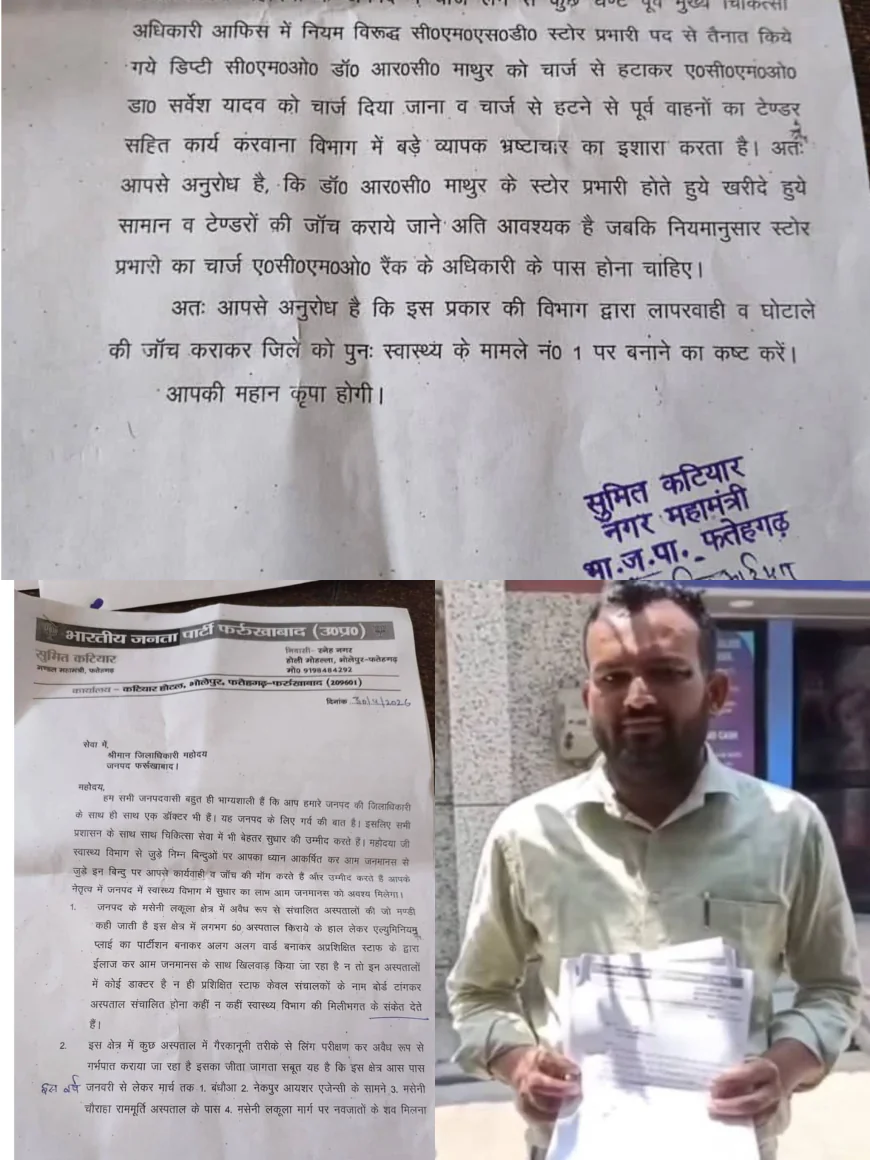 अधिकारी आफिस में नियम विरूद्ध सी०एम०एस०डी० स्टोर प्रभारी पद से तैनात किये
गये डिप्टी सी०एम०ओ० डॉ० आर०सी० माथुर को चार्ज से हटाकर ए०सी०एम०ओ०
डा० सर्वेश यादव को चार्ज दिया जाना व चार्ज से हटने से पूर्व वाहनों का टेण्डर
सहित कार्य करवाना विभाग में बड़े व्यापक भ्रष्टाचार का इशारा करता है। अतः
आपसे अनुरोध है, कि डॉ० आर०सी० माथुर के स्टोर प्रभारी होते हुये खरीदे हुये
सामान व टेण्डरों की जॉच कराये जाने अति आवश्यक है जबकि नियमानुसार स्टोर
प्रभारी का चार्ज ए०सी०एम०ओ० रैंक के अधिकारी के पास होना चाहिए।
अतः आपसे अनुरोध है कि इस प्रकार की विभाग द्वारा लापरवाही व घोटाले
की जॉच कराकर जिले को पुनः स्वास्थ्य के मामले नं० 1 पर बनाने का कष्ट करें।
आपकी महान कृपा होगी।
सुमित कटियार
नगर महामंत्री
भा.ज.पा. फतेहगढ़
भारतीय जनता पार्टी फर्रुखाबाद (उ०प्र०)
सुमित कटियार
मण्डल महामंत्री, फतेहगढ़
निवासी- स्नेह नगर
होली मोहल्ला, भोलेपुर-फतेहगढ़
मो० 9198484292
कार्यालय - कटियार होटल, भोलेपुर, फतेहगढ़-फर्रुखाबाद (209601)
दिनांक 30/4/2026
सेवा में,
श्रीमान जिलाधिकारी महोदय
जनपद फर्रूखाबाद।
महोदय,
हम सभी जनपदवासी बहुत ही भाग्यशाली हैं कि आप हमारे जनपद की जिलाधिकारी
के साथ ही साथ एक डॉक्टर भी हैं। यह जनपद के लिए गर्व की बात है। इसलिए सभी
प्रशासन के साथ साथ चिकित्सा सेवा में भी बेहतर सुधार की उम्मीद करते हैं। महोदया जी
स्वास्थ्य विभाग से जुड़े निम्न बिन्दुओं पर आपका ध्यान आकर्षित कर आम जनमानस से
जुड़े इन बिन्दु पर आपसे कार्यवाही व जॉच की मॉग करते है और उम्मीद करते है आपके
नेतृत्व में जनपद में स्वास्थ्य विभाग में सुधार का लाभ आम जनमानस को अवश्य मिलेगा।
1. जनपद के मसेनी लकूला क्षेत्र में अवैध रूप से संचालित अस्पतालों की जो मण्डी
कही जाती है इस क्षेत्र में लगभग 50 अस्पताल किराये के हाल लेकर एल्युमिनियम
प्लाई का पार्टीशन बनाकर अलग अलग वार्ड बनाकर अप्रशिक्षित स्टाफ के द्वारा
ईलाज कर आम जनमानस के साथ खिलवाड़ किया जा रहा है न तो इन अस्पतालों
में कोई डाक्टर है न ही प्रशिक्षित स्टाफ केवल संचालकों के नाम बोर्ड टांगकर
अस्पताल संचालित होना कहीं न कहीं स्वास्थ्य विभाग की मिलीभगत के संकेत देते
हैं।
2. इस क्षेत्र में कुछ अस्पताल में गैरकानूनी तरीके से लिंग परीक्षण कर अवैध रूप से
गर्भपात कराया जा रहा है इसका जीता जागता सबूत यह है कि इस क्षेत्र आस पास
इस वर्ष जनवरी से लेकर मार्च तक 1. बंधौआ 2. नेकपुर आयशर एजेन्सी के सामने 3. मसेनी
चौराहा राममूर्ति अस्पताल के पास 4. मसेनी लकूला मार्ग पर नवजातों के शव मिलना